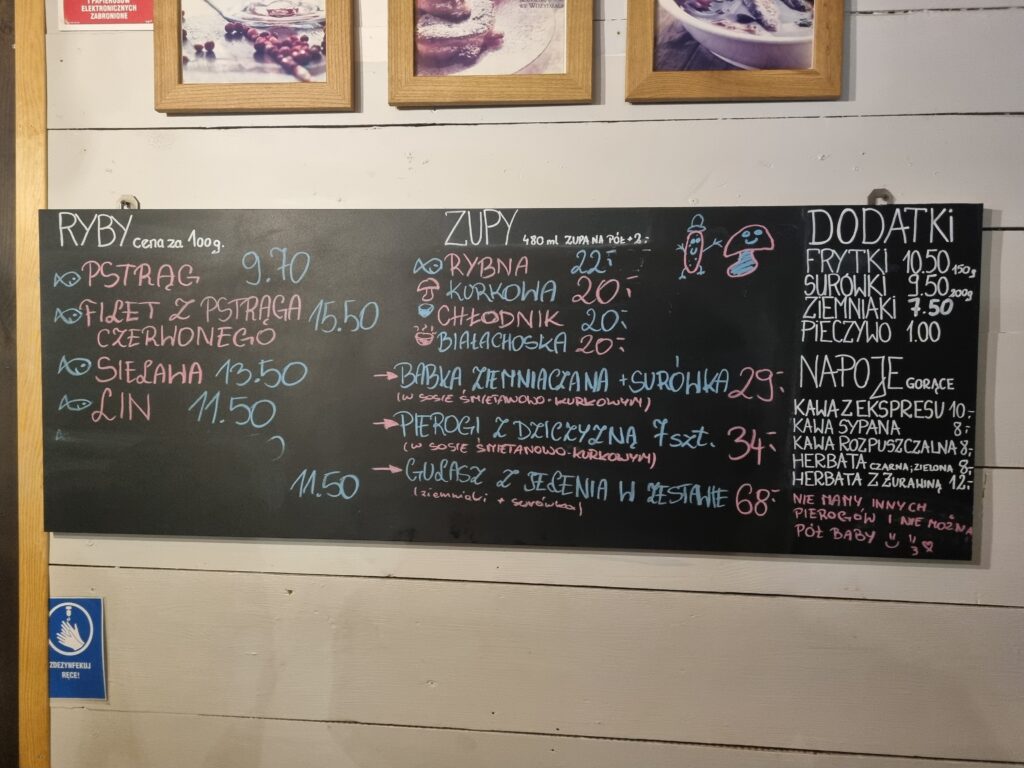 I PAPIEROSÓW
ELEKTRONICZNYCH
ZABRONIONE
RYBY cena za 100g.
PSTRĄG 9.70
FILET Z PSTRĄGA
CZERWONEGO 15.50
SIELAWA 13.50
LIN 11.50
11.50
ZUPY 480 ml ZUPA NA PÓŁ +2.-
RYBNA 22.-
KURKOWA 20.-
CHŁODNIK 20.-
BIAŁACHOSKA 20.-
→ BABKA ZIEMNIACZANA + SURÓWKA 29.-
(W SOSIE ŚMIETANOWO-KURKOWYM)
→ PIEROGI Z DZICZYZNĄ 7szt. 34.-
(W SOSIE ŚMIETANOWO-KURKOWYM)
→ GULASZ Z JELENIA W ZESTAWIE 68.-
(ziemniaki + surówka)
DODATKI
FRYTKI 10.50 150g
SURÓWKI 9.50 200g
ZIEMNIAKI 7.50
PIECZYWO 1.00
NAPOJE GORĄCE
KAWA Z EKSPRESU 10.-
KAWA SYPANA 8.-
KAWA ROZPUSZCZALNA 8.-
HERBATA CZARNA; ZIELONA 8.-
HERBATA Z ŻURAWINĄ 12.-
NIE MAMY INNYCH
PIEROGÓW I NIE MOŻNA
PÓŁ BABY
ZDEZYNFEKUJ
RĘCE!